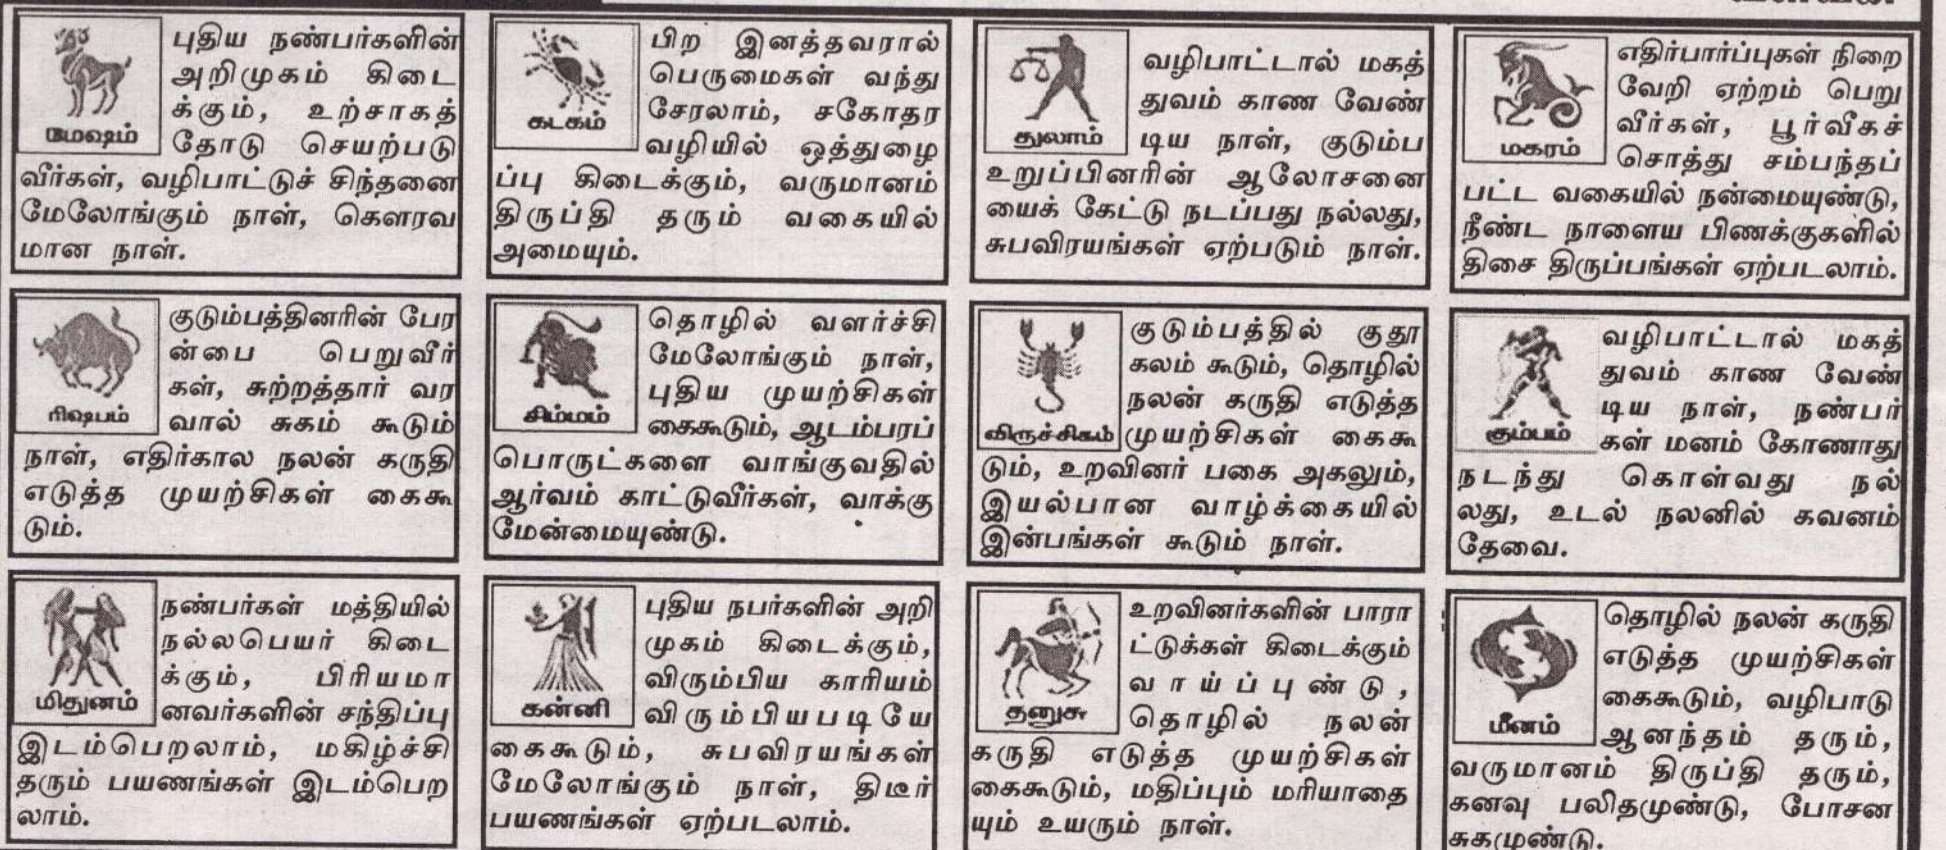 புதிய நண்பர்களின்
அறிமுகம் கிடை
க்கும், உற்சாகத்
மேஷம்
தோடு செயற்படு
வீர்கள், வழிபாட்டுச் சிந்தனை
மேலோங்கும் நாள், கௌரவ
மான நாள்.
குடும்பத்தினரின் பேர
ன்பை பெறுவீர்
கள், சுற்றத்தார் வர
ரிஷபம்
வால் சுகம் கூடும்
நாள், எதிர்கால நலன் கருதி
எடுத்த முயற்சிகள் கைகூ
டும்.
நண்பர்கள் மத்தியில்
நல்லபெயர் கிடை
க்கும், பிரியமா
மிதுனம்
னவர்களின் சந்திப்பு
இடம்பெறலாம், மகிழ்ச்சி
தரும் பயணங்கள் இடம்பெற
லாம்.
பிற இனத்தவரால்
பெருமைகள் வந்து
சேரலாம், சகோதர
கடகம்
வழியில் ஒத்துழை
ப்பு கிடைக்கும், வருமானம்
திருப்தி தரும் வகையில்
அமையும்.
தொழில் வளர்ச்சி
மேலோங்கும் நாள்,
புதிய முயற்சிகள்
சிம்மம்
கைகூடும், ஆடம்பரப்
பொருட்களை வாங்குவதில்
ஆர்வம் காட்டுவீர்கள், வாக்கு
மேன்மையுண்டு.
புதிய நபர்களின் அறி
முகம் கிடைக்கும்,
விரும்பிய காரியம்
கன்னி
விரும்பியபடியே
கைகூடும், சுபவிரயங்கள்
மேலோங்கும் நாள், திடீர்
பயணங்கள் ஏற்படலாம்.
வழிபாட்டால் மகத்
துவம் காண வேண்
துலாம்
டிய நாள், குடும்ப
உறுப்பினரின் ஆலோசனை
யைக் கேட்டு நடப்பது நல்லது,
சுபவிரயங்கள் ஏற்படும் நாள்.
குடும்பத்தில் குதூ
கலம் கூடும், தொழில்
நலன் கருதி எடுத்த
விருச்சிகம்
முயற்சிகள் கைகூ
டும், உறவினர் பகை அகலும்,
இயல்பான வாழ்க்கையில்
இன்பங்கள் கூடும் நாள்.
உறவினர்களின் பாரா
ட்டுக்கள் கிடைக்கும்
வாய்ப்புண்டு,
தனுசு
தொழில் நலன்
கருதி எடுத்த முயற்சிகள்
கைகூடும், மதிப்பும் மரியாதை
யும் உயரும் நாள்.
எதிர்பார்ப்புகள் நிறை
வேறி ஏற்றம் பெறு
வீர்கள், பூர்வீகச்
மகரம்
சொத்து சம்பந்தப்
பட்ட வகையில் நன்மையுண்டு,
நீண்ட நாளைய பிணக்குகளில்
திசை திருப்பங்கள் ஏற்படலாம்.
வழிபாட்டால் மகத்
துவம் காண வேண்
டிய நாள், நண்பர்
கும்பம்
கள் மனம் கோணாது
நடந்து கொள்வது நல்
லது, உடல் நலனில் கவனம்
தேவை.
தொழில் நலன் கருதி
எடுத்த முயற்சிகள்
கைகூடும், வழிபாடு
மீனம்
ஆனந்தம் தரும்,
வருமானம் திருப்தி தரும்,
கனவு பலிதமுண்டு, போசன
சுகமுண்டு.